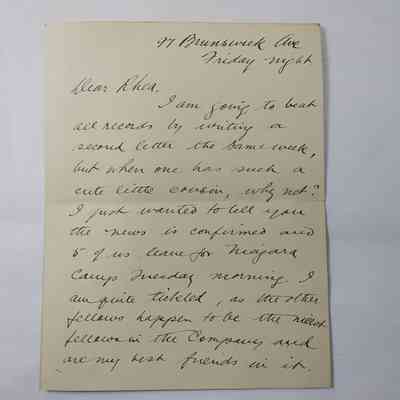 97 Brunswick Ave
Friday night
Dear Rhea,
I am going to beat
all records by writing a
second letter the same week,
but when one has such a
cute little cousin, why not?
I just wanted to tell you
the news is confirmed and
5 of us leave for Niagara
Camp Tuesday morning. I
am quite tickled, as the other
fellows happen to be the nicest
fellows in the Company and
are my best friends in it.